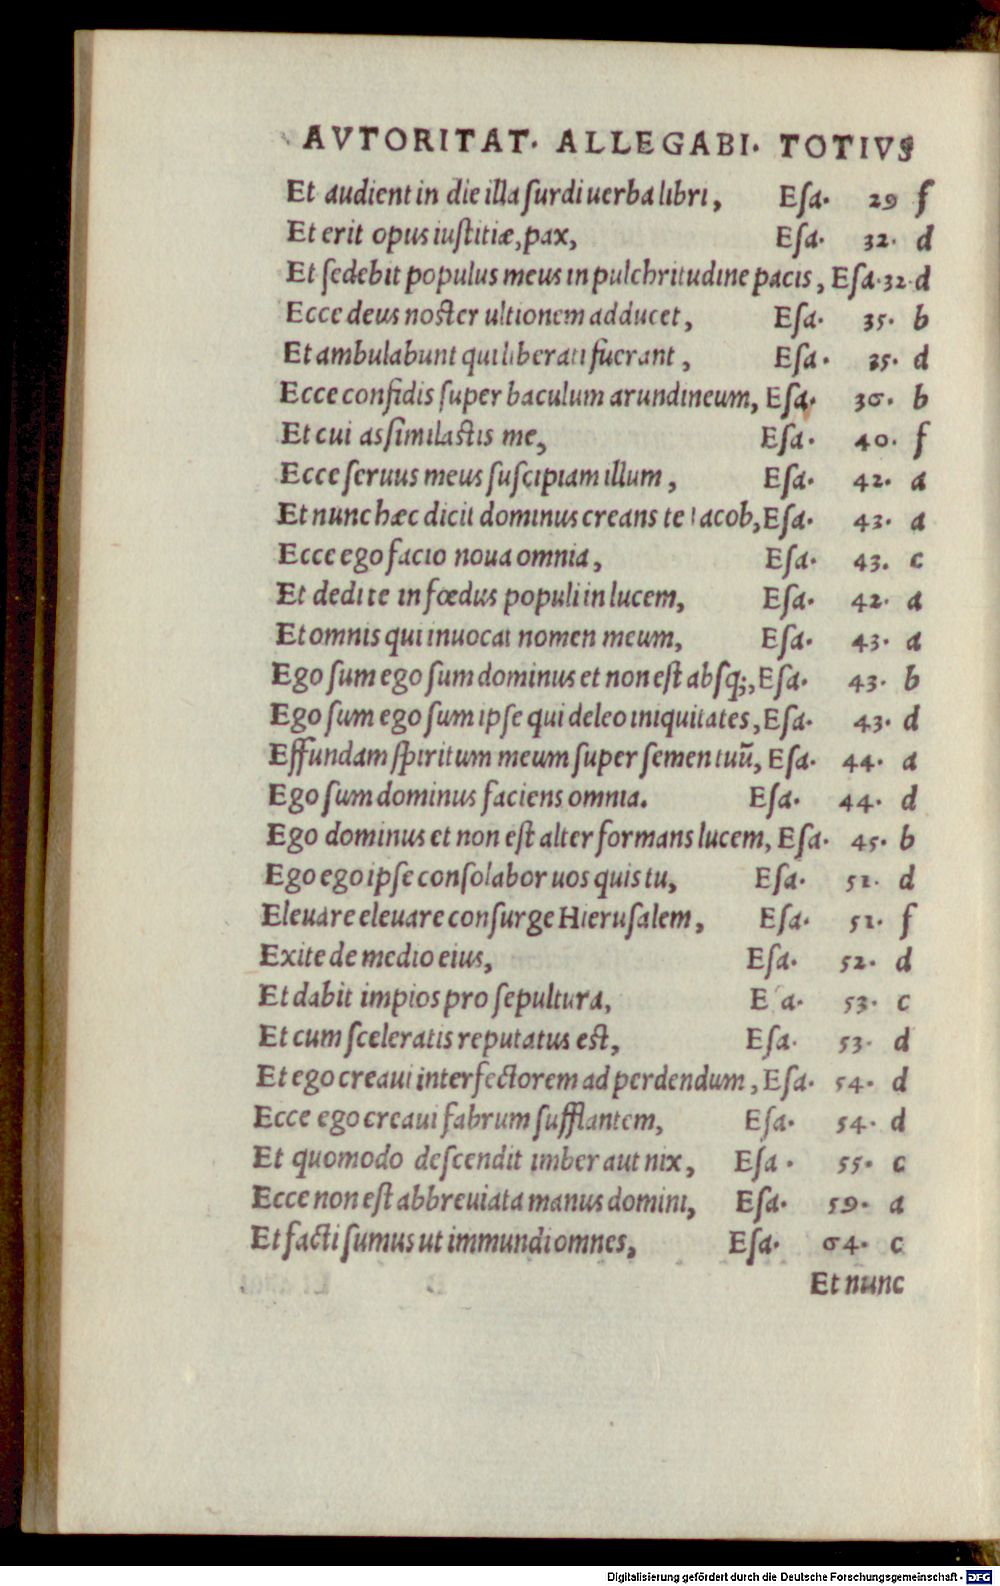 AVTORITAT· ALLEGABI· TOTIVS
Et audient in die illa ſurdi uerba libri, Eſa· 29 f
Et erit opus iuſtitiæ, pax, Eſa· 32· d
Et ſedebit populus meus in pulchritudine pacis, Eſa·32·d
Ecce deus noſter ultionem adducet, Eſa· 35· b
Et ambulabunt qui liberati fuerant, Eſa· 35· d
Ecce confidis ſuper baculum arundineum, Eſa· 36· b
Et cui aſſimilaſtis me, Eſa· 40· f
Ecce ſeruus meus ſuſcipiam illum, Eſa· 42· a
Et nunc hæc dicit dominus creans te Iacob, Eſa· 43· a
Ecce ego facio noua omnia, Eſa· 43. c
Et dedi te in fœdus populi in lucem, Eſa· 42· a
Et omnis qui inuocat nomen meum, Eſa· 43· a
Ego ſum ego ſum dominus et non eſt abſq;, Eſa· 43· b
Ego ſum ego ſum ipſe qui deleo iniquitates, Eſa· 43· d
Effundam ſpiritum meum ſuper ſemen tuū, Eſa· 44· a
Ego ſum dominus faciens omnia. Eſa· 44· d
Ego dominus et non eſt alter formans lucem, Eſa· 45· b
Ego ego ipſe conſolabor uos quis tu, Eſa· 51· d
Eleuare eleuare conſurge Hieruſalem, Eſa· 51· f
Exite de medio eius, Eſa· 52· d
Et dabit impios pro ſepultura, Eſa· 53· c
Et cum ſceleratis reputatus eſt, Eſa· 53· d
Et ego creaui interfectorem ad perdendum, Eſa· 54· d
Ecce ego creaui fabrum ſufflantem, Eſa· 54· d
Et quomodo deſcendit imber aut nix, Eſa· 55· c
Ecce non eſt abbreuiata manus domini, Eſa· 59· a
Et facti ſumus ut immundi omnes, Eſa· 64· c
Et nunc
Digitalisierung gefördert durch die Deutsche Forschungsgemeinschaft - DFG